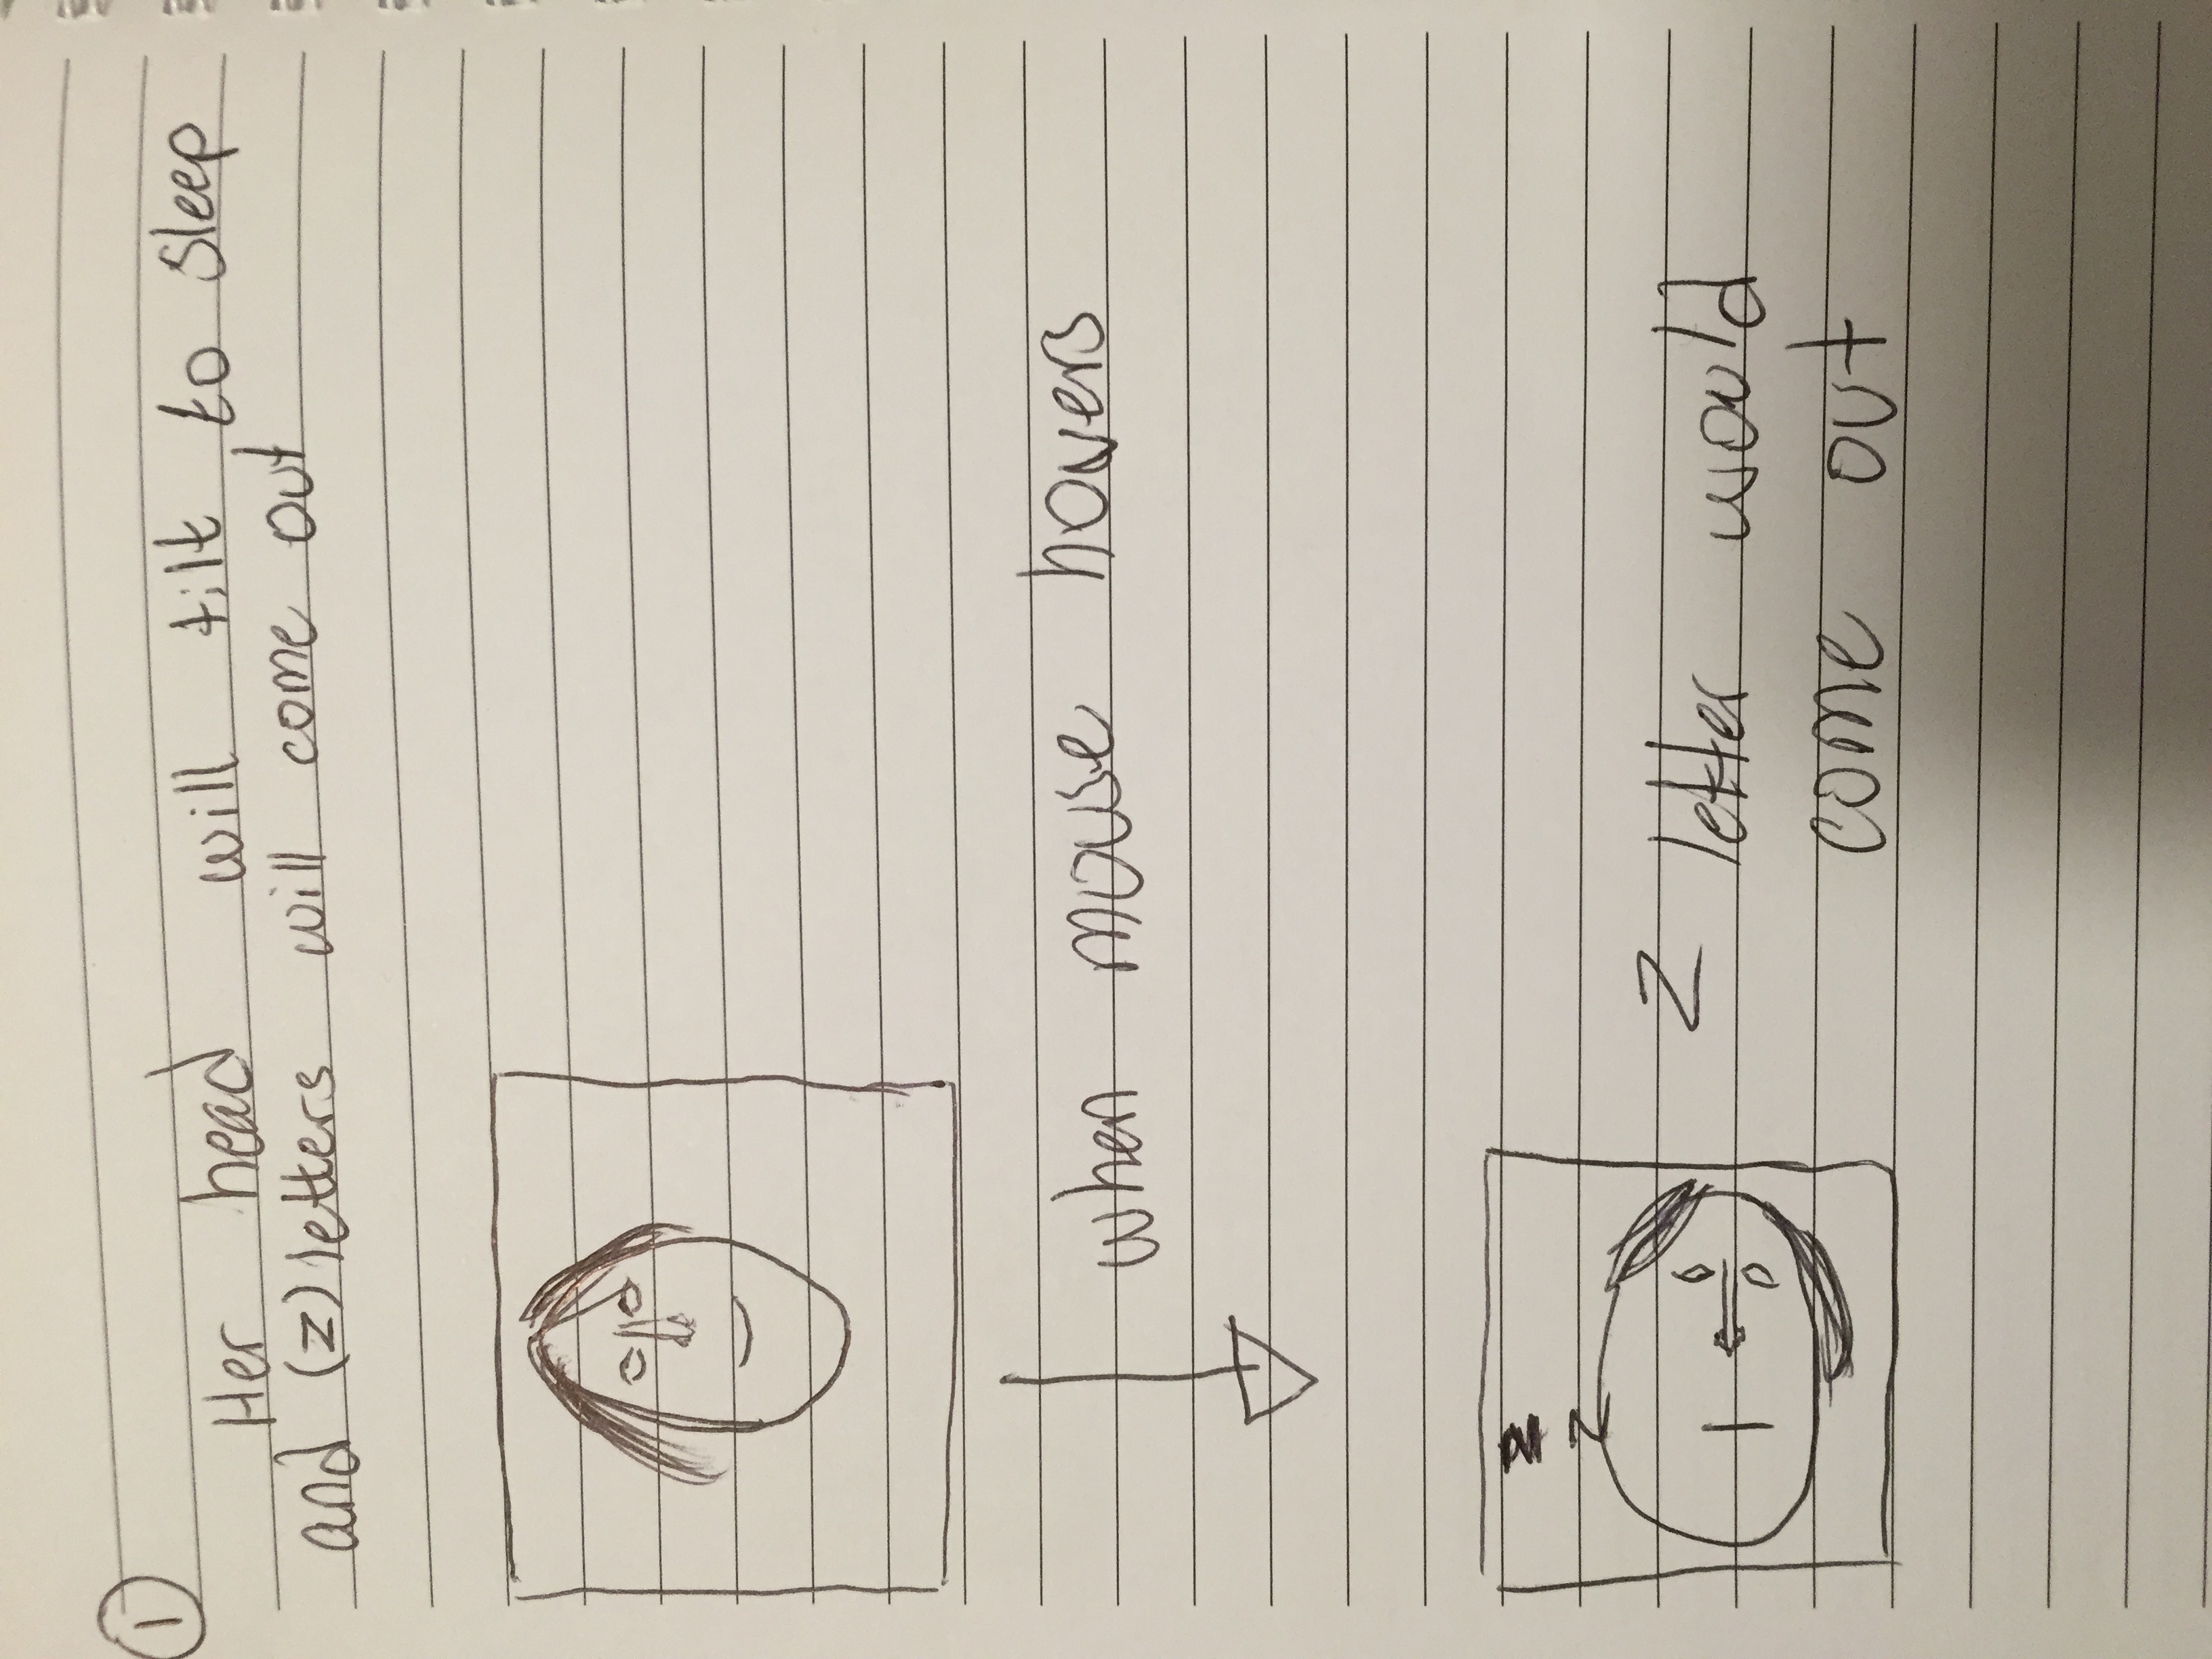 1
Her head will tilt to sleep
and (z) letters will come out
when mouse hovers
z
z letter would
come out